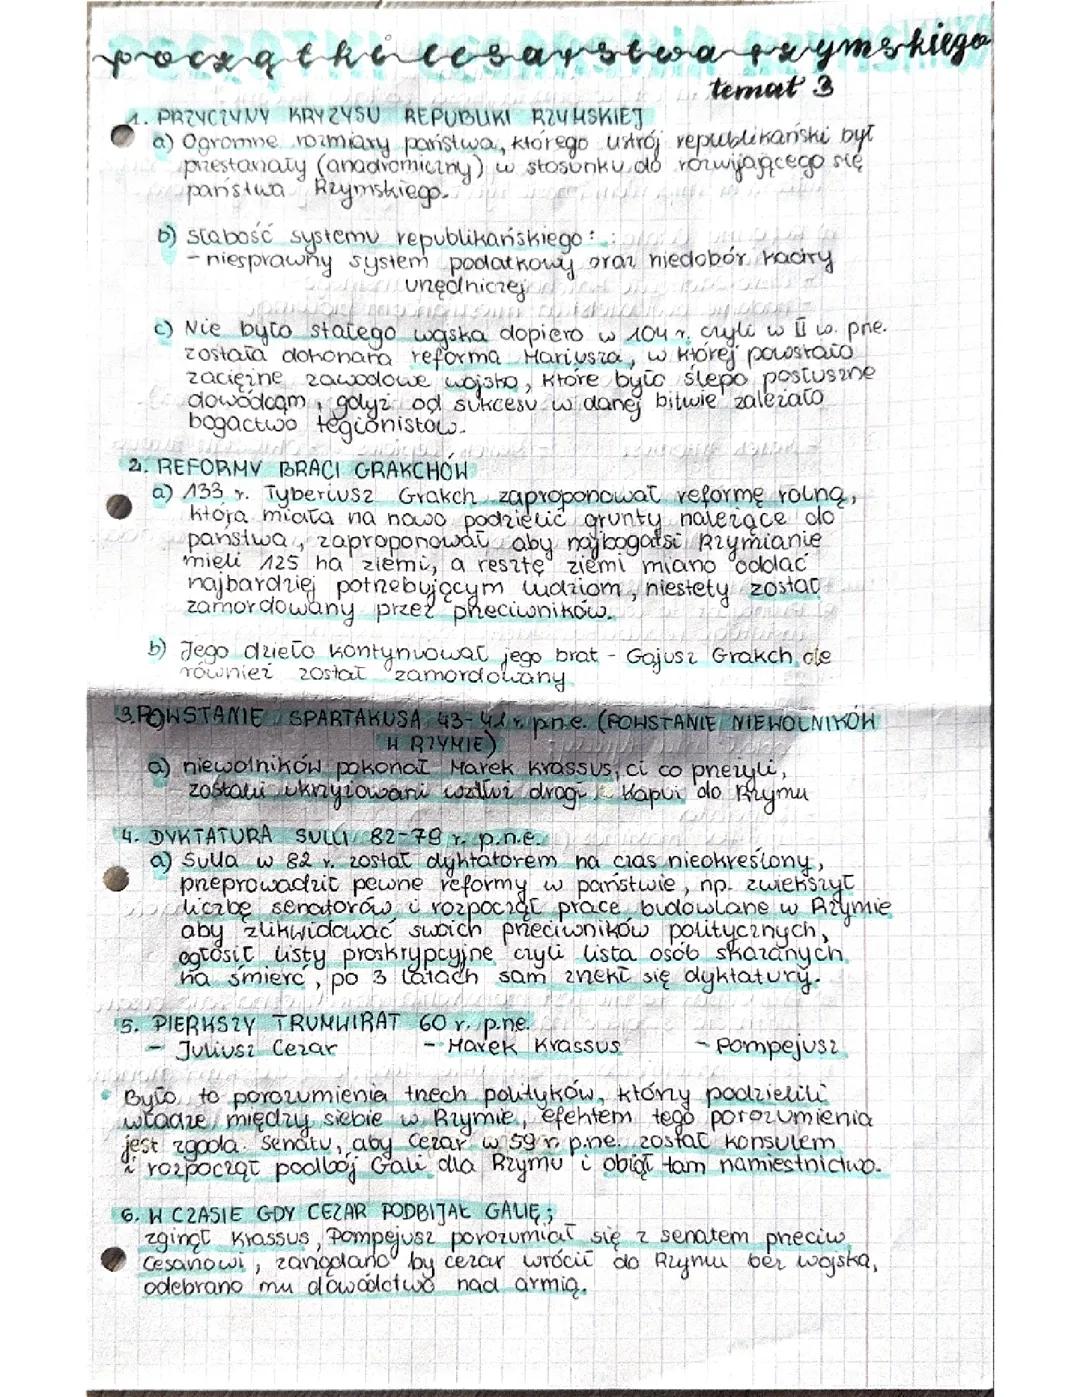 początki cesarstwa rzymskiego
temat 3
1. PRZYCZYNY KRYZYSU REPUBLIKI RZYMSKIEJ
a) Ogromne rozmiary państwa, którego ustrój republikański był
przestarzały (anadromiczny) w stosunku do rozwijającego się
państwa Rzymskiego.
b) słabość systemu republikańskiego:
- niesprawny system podatkowy oraz niedobór kadry
urzędniczej
c) Nie było stałego wąska dopiero w 104 r. czyli w II w. pne.
została dokonana reforma Mariusza, w której powstało
zaciężne zawodowe wojsko, które było ślepo posłuszne
dowódcom, gdyż od sukcesu w danej bitwie zależało
bogactwo legionistów.
2. REFORMY BRACI GRAKCHÓW
a) 133 r. Tyberiusz Grakch zaproponował reformę rolną,
która miała na nowo podzielić grunty należące do
państwa, zaproponował aby najbogatsi Rzymianie
mieli 125 ha ziemi, a resztę ziemi miano oddać
najbardziej potrzebującym ludziom, niestety został
zamordowany przez przeciwników.
b) Jego dzieło kontynuował jego brat - Gajusz Grakch ale
również został zamordowany
3. POWSTANIE SPARTAKUSA 43-41 r. p.n.e. (POWSTANIE NIEWOLNIKÓW
W RZYMIE)
a) niewolników pokonał Marek Krassus, ci co przeżyli,
zostali ukrzyżowani wzdłuż drogi z Kapui do Rzymu
4. DYKTATURA SULLI 82-79 r. p.n.e.
a) Sulla w 82 r. został dyktatorem na czas nieokreślony,
przeprowadził pewne reformy w państwie, np. zwiększył
liczbę senatorów i rozpoczął prace budowlane w Rzymie
aby zlikwidować swoich przeciwników politycznych,
ogłosił listy proskrypcyjne czyli lista osób skazanych
na śmierć, po 3 latach sam zrzekł się dyktatury.
5. PIERWSZY TRUMWIRAT 60 r. p.ne.
- Juliusz Cezar - Marek Krassus - Pompejusz
• Było to porozumienia trzech polityków, którzy podzielili
władzę między siebie w Rzymie, efektem tego porozumienia
jest zgoda Senatu, aby Cezar w 59 r. p.ne. został konsulem
i rozpoczął podbój Gali dla Rzymu i objął tam namiestnictwo.
6. W CZASIE GDY CEZAR PODBIJAŁ GALIĘ;
zginął Krassus, Pompejusz porozumiał się z senatem przeciw
Cesarowi, zażądano by cezar wrócił do Rzymu bez wojska,
odebrano mu dowództwo nad armią.